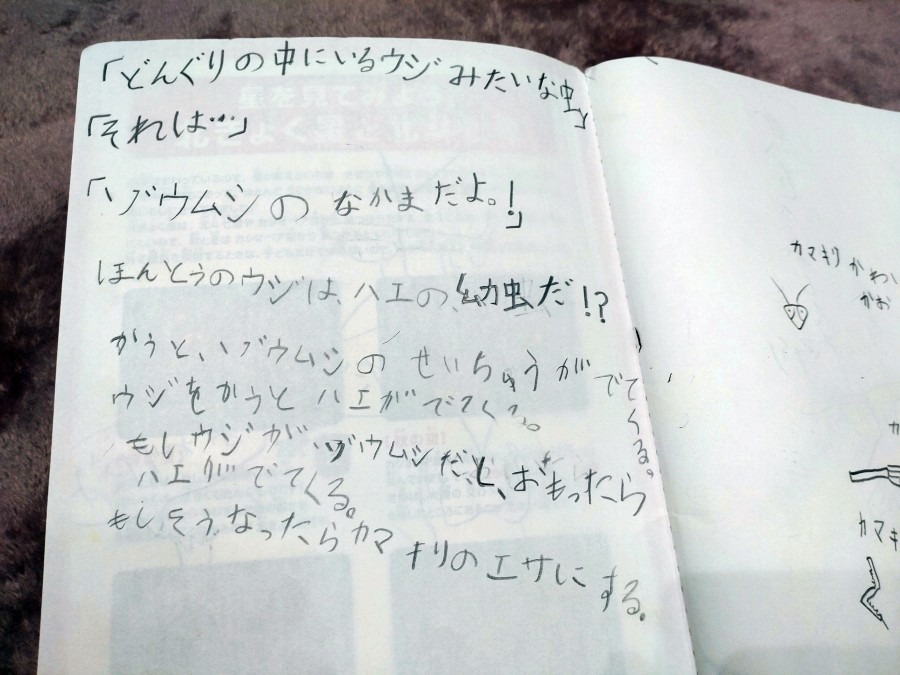 「どんぐりの中にいるウジみたいな虫」
「それは…」
「ゾウムシのなかまだよ。!」
ほんとうのウジは、ハエの幼虫だ!?
かうと、ゾウムシのせいちゅうがでてくる。
ウジをかうとハエがでてくる。
もしウジが、ゾウムシだ、と、おもったら
ハエがでてくる。
もしそうなったらカマキリのエサにする。
カマキリ かわい
かお
カマキ